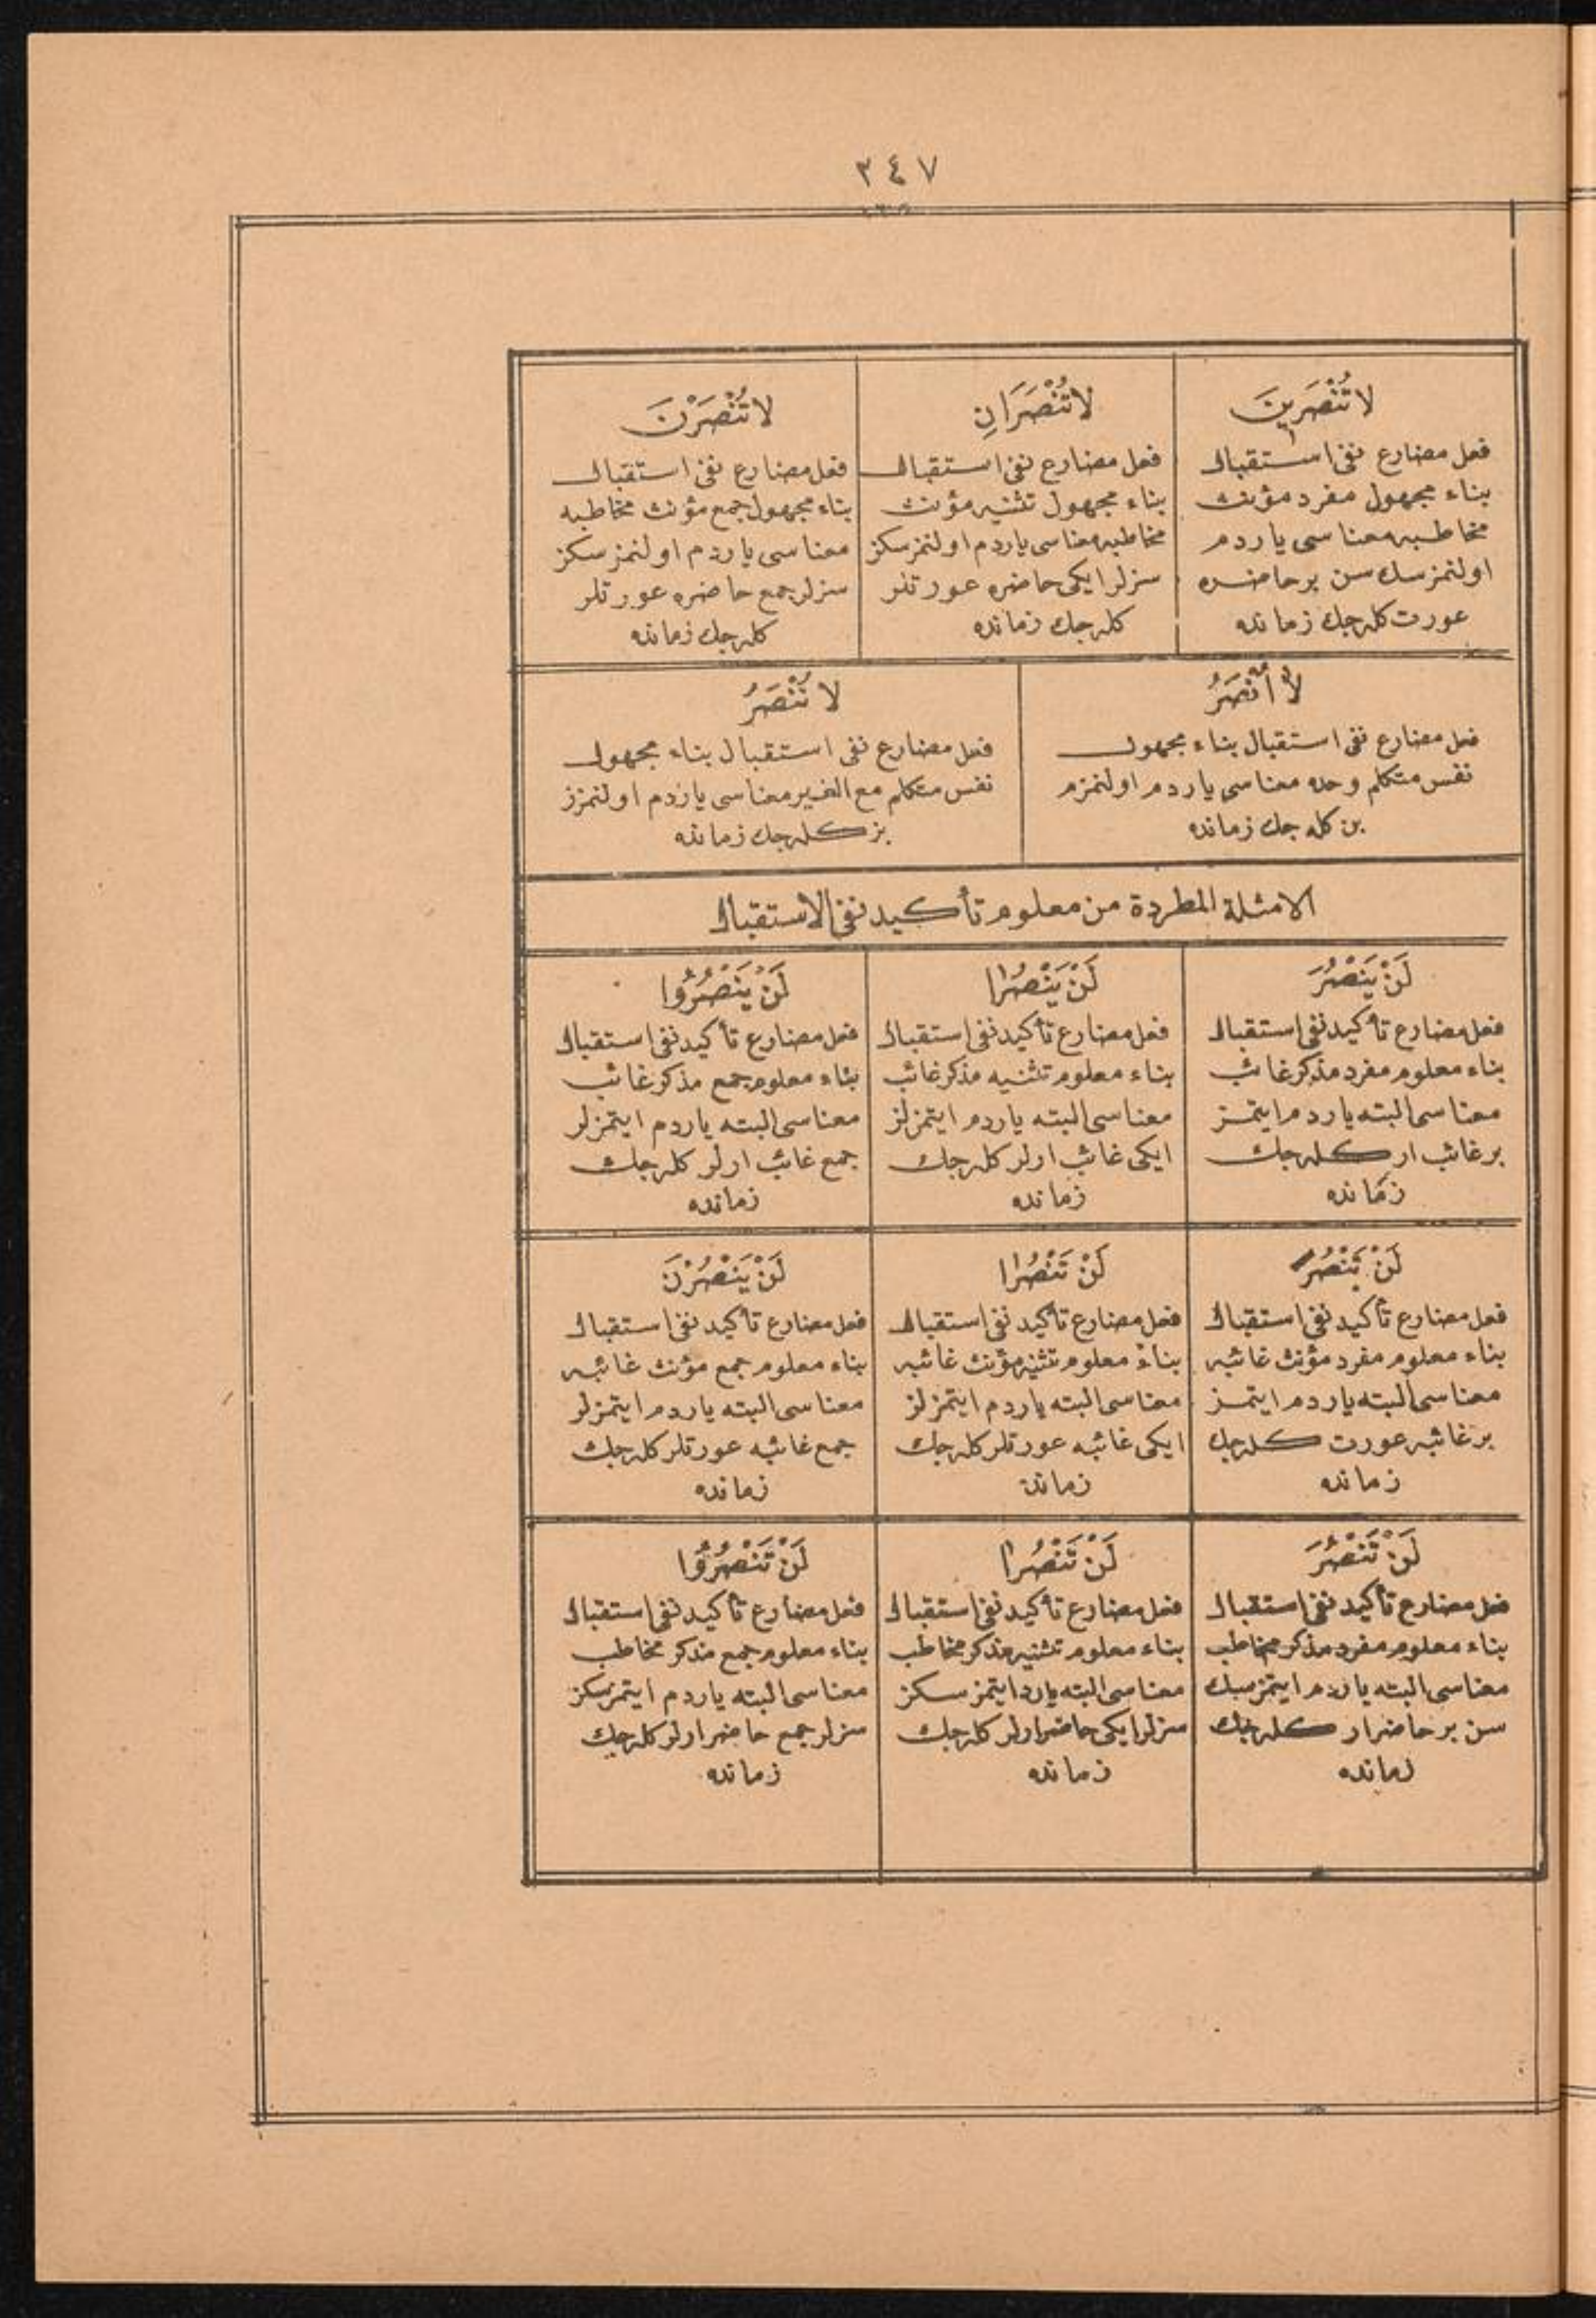 ٣٤٧
لا تُنْصَرِينَ
فعل مضارع نفی استقبال
بناء مجهول مفرد مؤنث
مخاطبه معناسی یاردم
اولنمزسك سن بر حاضره
عورت كله جك زمانده
لا تُنْصَرَانِ
فعل مضارع نفی استقبال
بناء مجهول تثنیه مؤنث
مخاطبه معناسی یاردم اولنمزسكز
سزلر ایكی حاضره عورتلر
كله جك زمانده
لا تُنْصَرْنَ
فعل مضارع نفی استقبال
بناء مجهول جمع مؤنث مخاطبه
معناسی یاردم اولنمزسكز
سزلر جمع حاضره عورتلر
كله جك زمانده
لا أُنْصَرُ
فعل مضارع نفی استقبال بناء مجهول
نفس متكلم وحده معناسی یاردم اولنمزم
بن كله جك زمانده
لا نُنْصَرُ
فعل مضارع نفی استقبال بناء مجهول
نفس متكلم مع الغیر معناسی یاردم اولنمزز
بز كله جك زمانده
الامثلة المطردة من معلوم تأكید نفی الاستقبال
لَنْ يَنْصُرَ
فعل مضارع تأكید نفی استقبال
بناء معلوم مفرد مذكر غائب
معناسی البته یاردم ایتمز
بر غائب ار كله جك
زمانده
لَنْ يَنْصُرَا
فعل مضارع تأكید نفی استقبال
بناء معلوم تثنیه مذكر غائب
معناسی البته یاردم ایتمزلر
ایكی غائب ارلر كله جك
زمانده
لَنْ يَنْصُرُوا
فعل مضارع تأكید نفی استقبال
بناء معلوم جمع مذكر غائب
معناسی البته یاردم ایتمزلر
جمع غائب ارلر كله جك
زمانده
لَنْ تَنْصُرَ
فعل مضارع تأكید نفی استقبال
بناء معلوم مفرد مؤنث غائبه
معناسی البته یاردم ایتمز
بر غائبه عورت كله جك
زمانده
لَنْ تَنْصُرَا
فعل مضارع تأكید نفی استقبال
بناء معلوم تثنیه مؤنث غائبه
معناسی البته یاردم ایتمزلر
ایكی غائبه عورتلر كله جك
زمانده
لَنْ يَنْصُرْنَ
فعل مضارع تأكید نفی استقبال
بناء معلوم جمع مؤنث غائبه
معناسی البته یاردم ایتمزلر
جمع غائبه عورتلر كله جك
زمانده
لَنْ تَنْصُرَ
فعل مضارع تأكید نفی استقبال
بناء معلوم مفرد مذكر مخاطب
معناسی البته یاردم ایتمزسك
سن بر حاضر ار كله جك
زمانده
لَنْ تَنْصُرَا
فعل مضارع تأكید نفی استقبال
بناء معلوم تثنیه مذكر مخاطب
معناسی البته یارد ایتمزسكز
سزلر ایكی حاضر ارلر كله جك
زمانده
لَنْ تَنْصُرُوا
فعل مضارع تأكید نفی استقبال
بناء معلوم جمع مذكر مخاطب
معناسی البته یاردم ایتمزسكز
سزلر جمع حاضر ارلر كله جك
زمانده